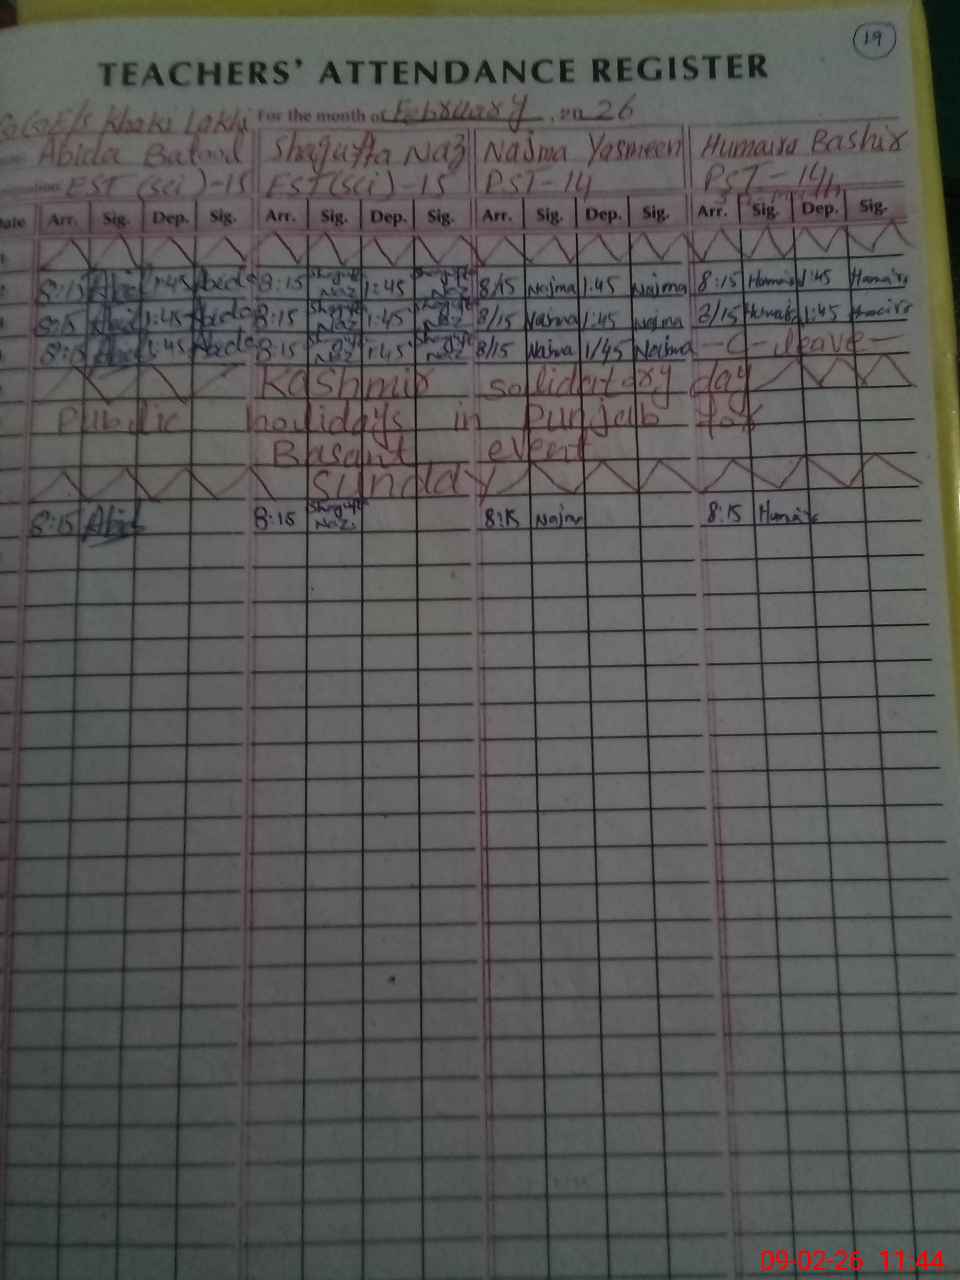 19
TEACHERS' ATTENDANCE REGISTER
GGE/s Khaki Lakhi For the month of February, 2026
Abida Batool Shagufta Naz Najma Yasmeen Humaira Bashir
EST (Sci)-15 EST (Sci)-15 PST-14 PST-14
Arr. Sig. Dep. Sig. Arr. Sig. Dep. Sig. Arr. Sig. Dep. Sig. Arr. Sig. Dep. Sig.
8:15 Abid 1:45 Abida 8:15 Shagufta Naz 1:45 Shagufta Naz 8/15 Najma 1:45 Najma 8:15 Humaira 1:45 Humaira
8:15 Abid 1:45 Abida 8:15 Shagufta Naz 1:45 Shagufta Naz 8/15 Najma 1:45 Najma 8/15 Humaira 1:45 Humaira
8:15 Abid 1:45 Abida 8:15 Shagufta Naz 1:45 Shagufta Naz 8/15 Najma 1/45 Najma - C - leave -
Kashmir solidatary day
Public holidays in Punjab for
Basant event
Sunday
8:15 Abid 8:15 Shagufta Naz 8:15 Najma 8:15 Humaira
09-02-26 11:44